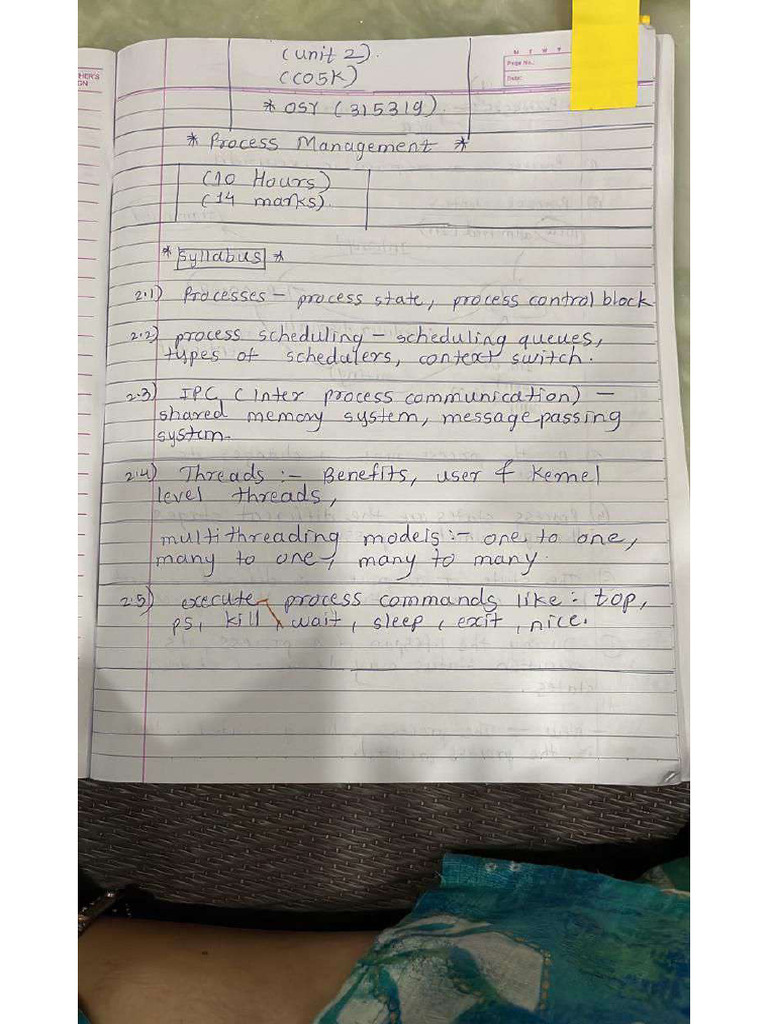 (unit 2).
(CO5K)
M T W F
Page No.:
Date:
HER'S
GN
* OSY (315319).
* Process Management *
(10 Hours)
(14 marks).
* Syllabus *
2.1) Processes - process state, process control block
2.2) process scheduling - scheduling queues,
types of schedulers, context switch.
2.3) IPC (Inter process communication) -
shared memory system, message passing
system.
2.4) Threads :- Benefits, user & kernel
level threads,
multithreading models :- one to one,
many to one, many to many.
2.5) execute process commands like : top,
ps, kill, wait, sleep, exit, nice.